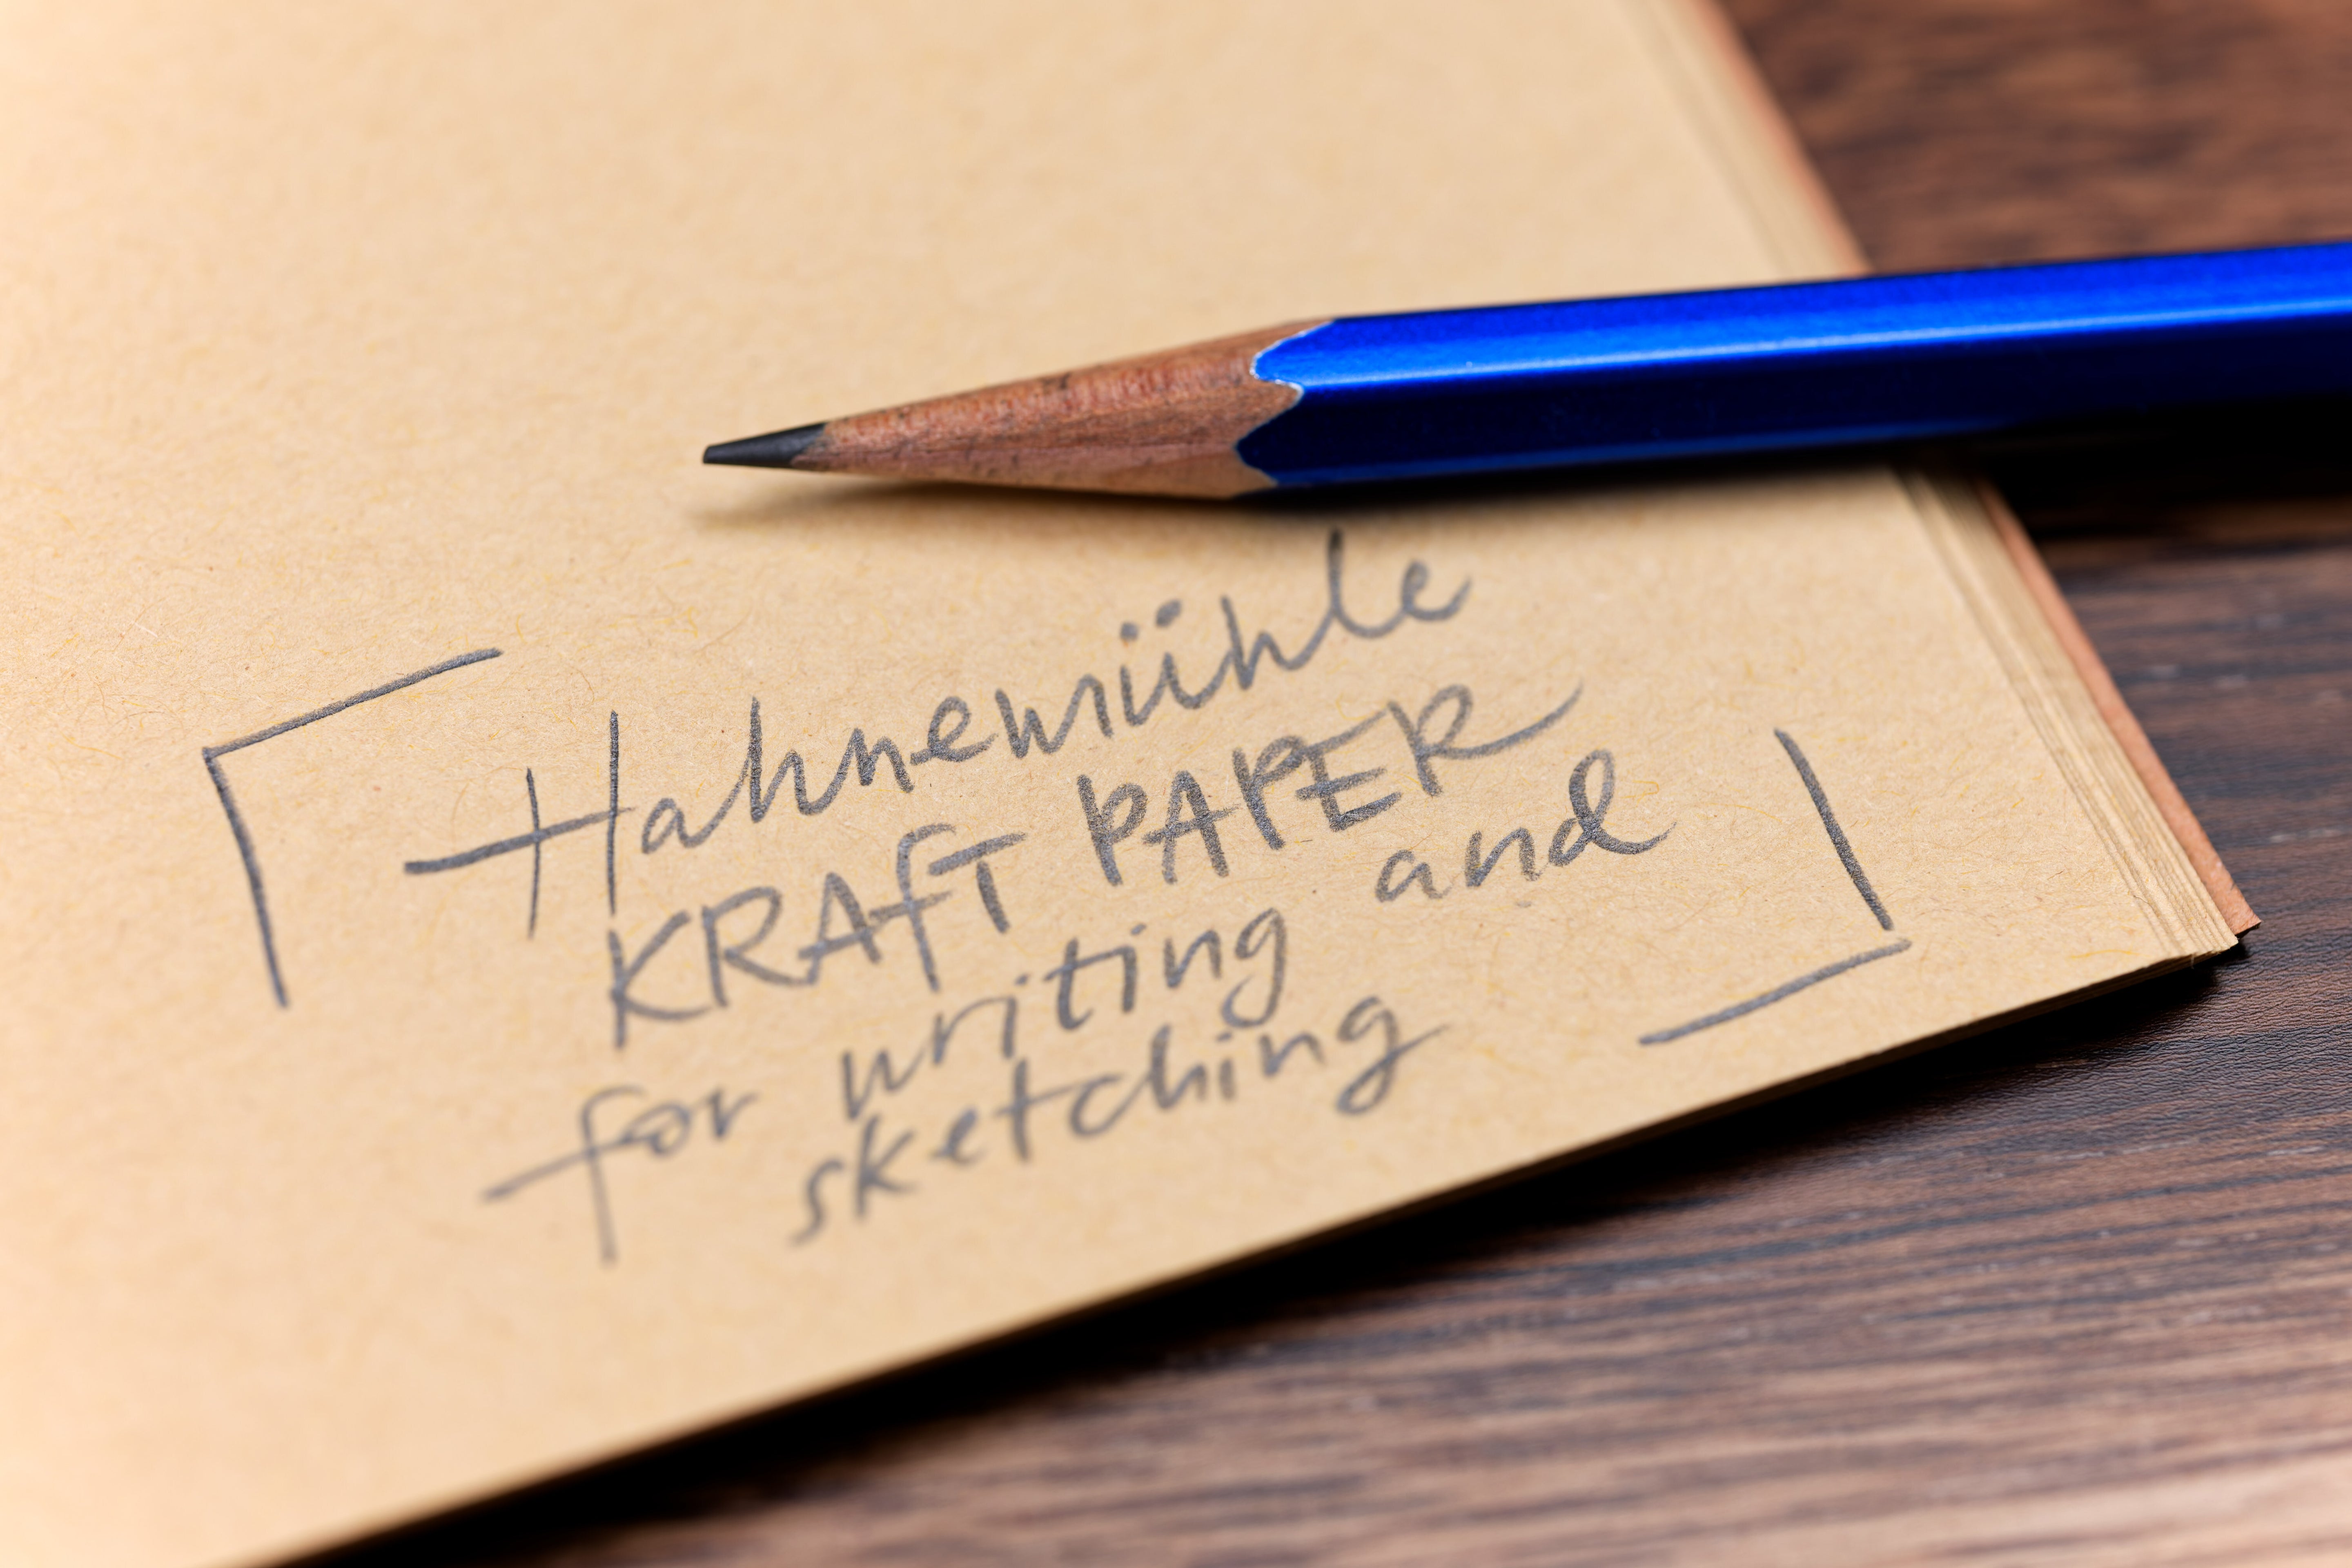 Hahnemühle
KRAfT PAPER
for writing and
sketching